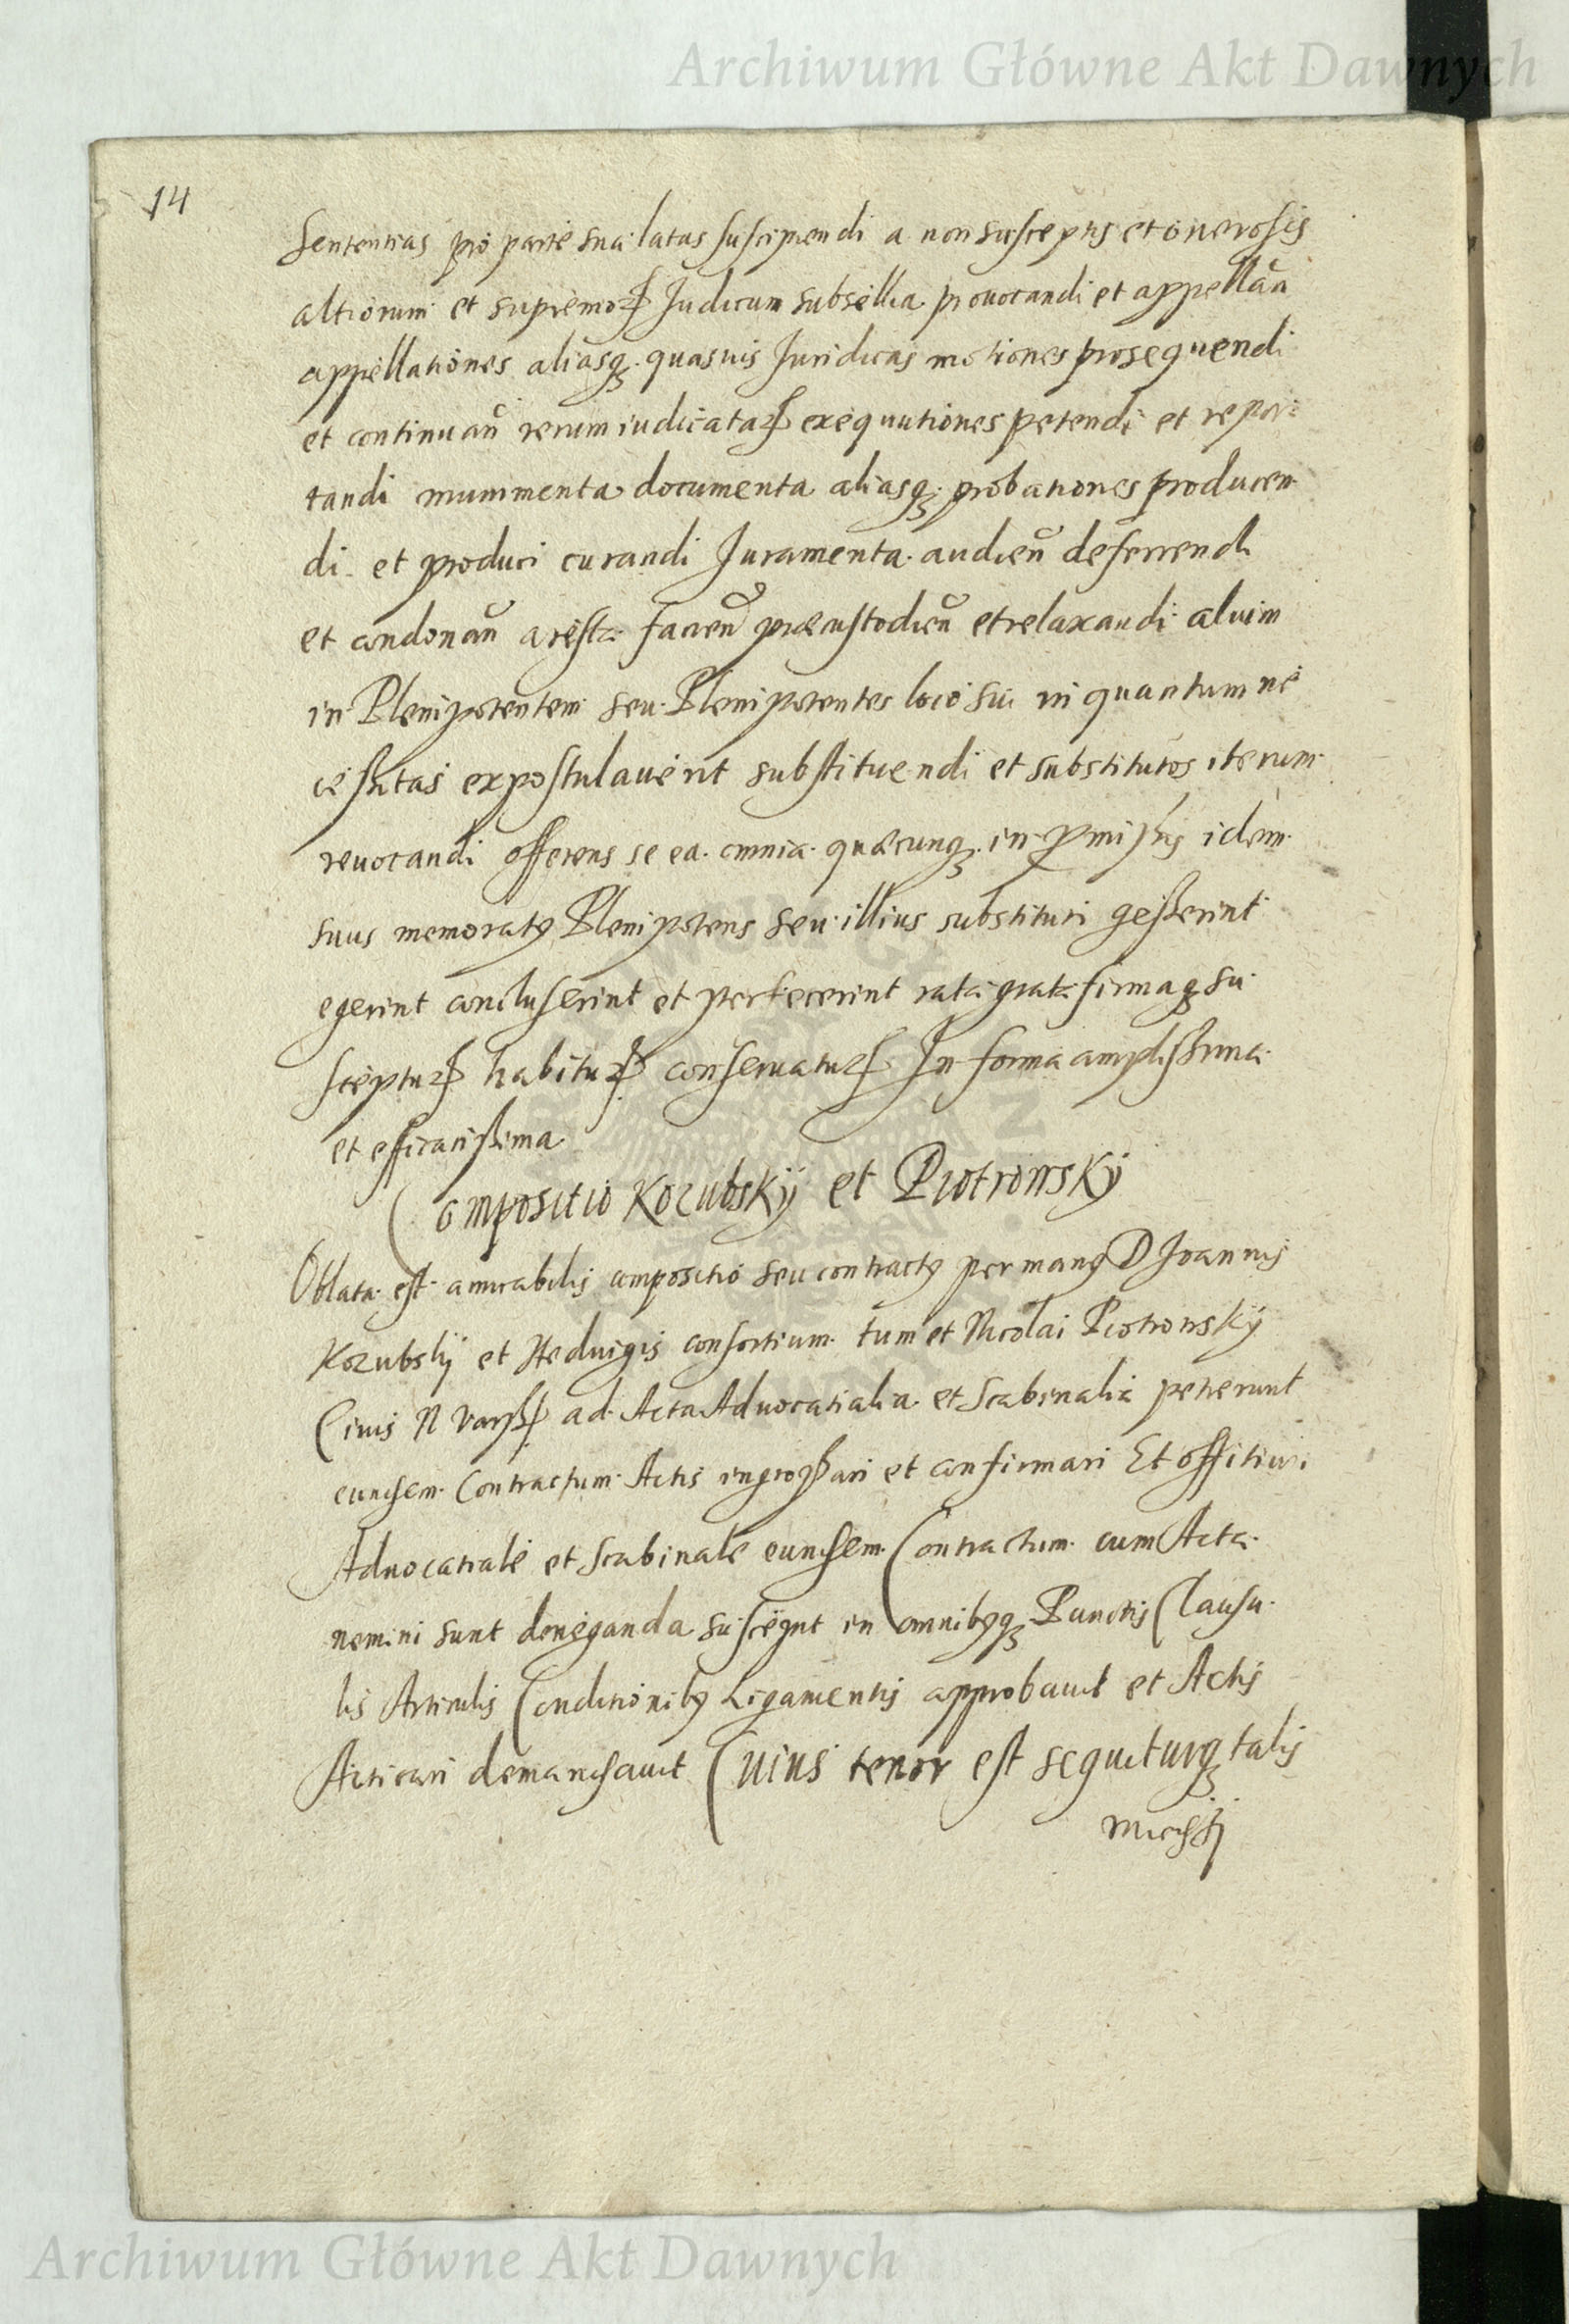 Archiwum Główne Akt Dawnych
14
Sententias pro parte sua latas suscipiendi a non susceptis et onerosis
altiorum et supremoꝝ Judicum subsellia prouocandi et appellan̄
appellationes aliasqꝫ quasuis Juridicas motiones prosequendi
et continuan̄ rerum iudicataꝝ exequutiones petendi et repor
tandi munimenta documenta aliasqꝫ probationes producen
di et produci curandi Juramenta audien̄ deferrendi
et condonan̄ aresta facien̄ præcustodien̄ et relaxandi alium
in Plenipotentem seu Plenipotentes loco sui in quantum ne
cessitas expostulauerit substituendi et substitutos iterum
reuocandi offerens se ea omnia quæcunqꝫ in p̄missis idem
suus memoratꝰ Plenipotens seu illius substituti gesserint
egerint concluserint et perfecerint rata grata firmaqꝫ su
scepturꝝ habiturꝝ conseruaturꝝ In forma amplissima
et efficacissima
Compositio Kozubskÿ et Piotrowskÿ
Oblata est amicabilis compositio seu contractꝰ per manꝰ D Joannis
Kozubskÿ et Heduigis consortium tum et Nicolai Piotrowskÿ
Ciuis N ad Acta Aduocatialia et Scabinalia petierunt
eundem Contractum Actis ingrossari et confirmari Et offitium
Aduocatiale et Scabinale eundem Contractum cum Acta
nemini sunt deneganda in omnibꝰqꝫ Punctis Clausu
lis Articulis Conditionibꝰ Ligamentis approbauit et Actis
Acticari demandauit Cuius tenor est sequiturqꝫ talis
Archiwum Główne Akt Dawnych